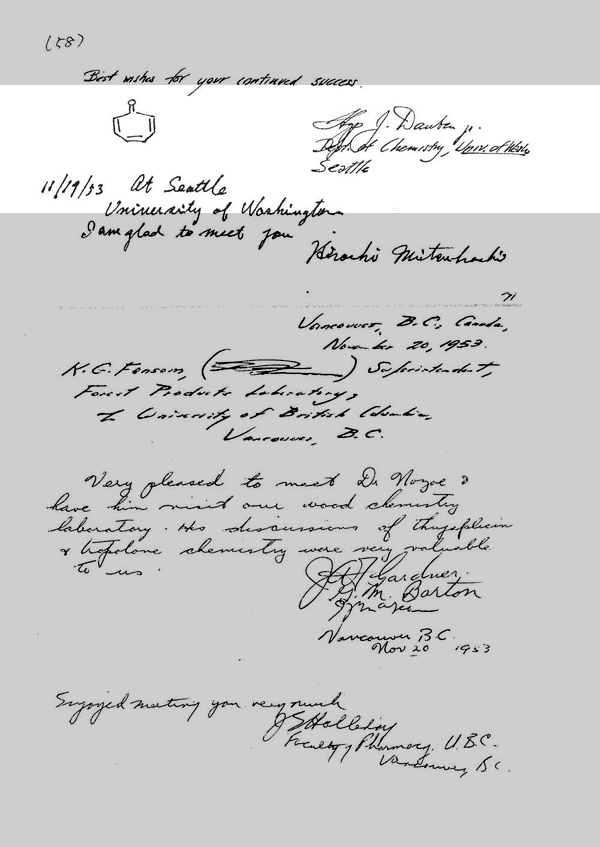 (58)
Best wishes for your continued success.
Hyp J. Dauben Jr.
Dept. of Chemistry, Univ. of Wash.
Seattle
11/19/53 At Seattle
University of Washington
I am glad to meet you
Hiroshi Mitsuhashi
Vancouver, B.C., Canada,
November 20, 1953.
K. G. Fensom, Superintendent,
Forest Products Laboratory,
University of British Columbia,
Vancouver, B.C.
Very pleased to meet Dr Nozoe &
have him visit our wood chemistry
laboratory. His discussions of thujaplicin
& tropolone chemistry were very valuable
to us.
J A F Gardner.
G. M. Barton
Vancouver B.C.
Nov 20 1953
Enjoyed meeting you very much
Faculty of Pharmacy, U.B.C.
Vancouver, B.C.